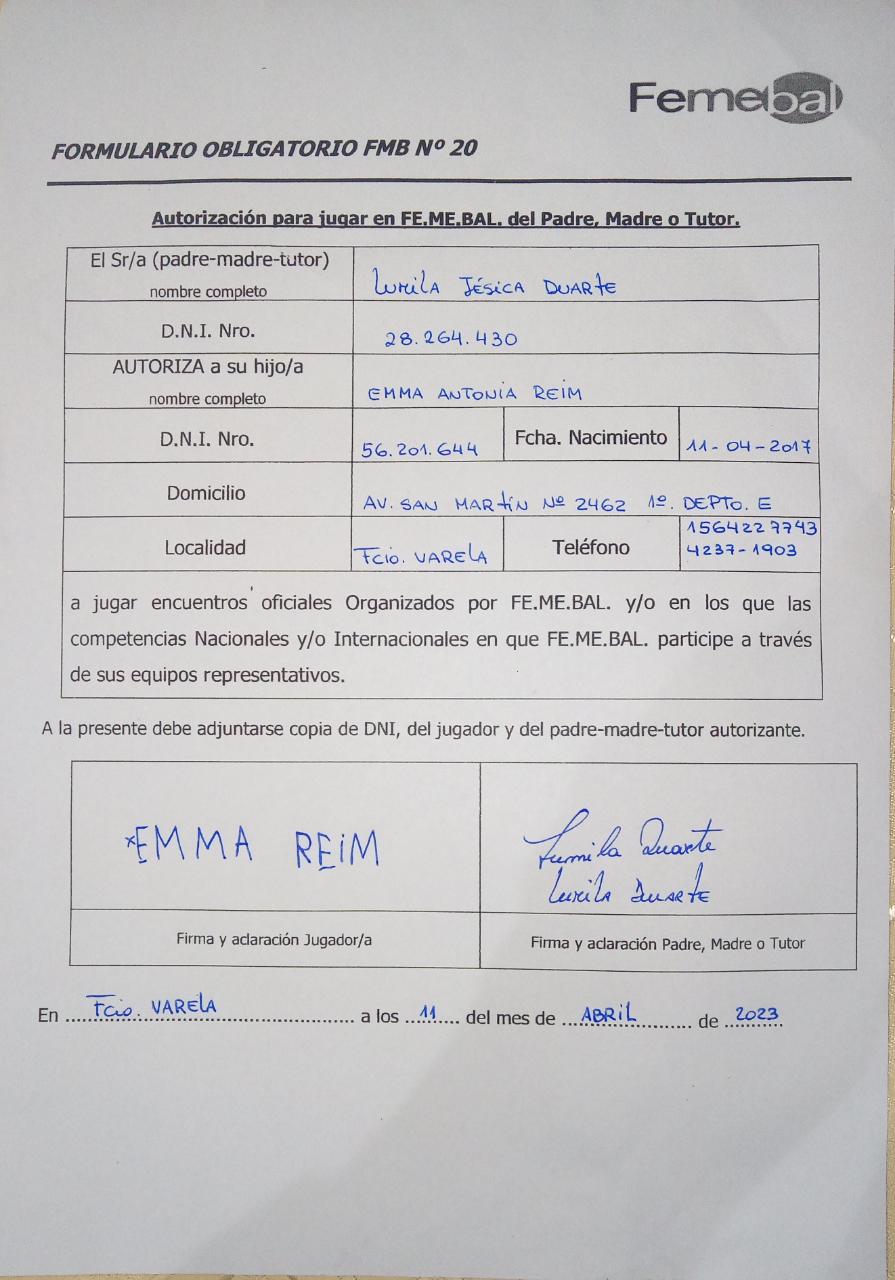 Femebal
FORMULARIO OBLIGATORIO FMB Nº 20
Autorización para jugar en FE.ME.BAL. del Padre, Madre o Tutor.
El Sr/a (padre-madre-tutor)
nombre completo
LUMILA JÉSICA DUARTE
D.N.I. Nro.
28.264.430
AUTORIZA a su hijo/a
nombre completo
EMMA ANTONIA REIM
D.N.I. Nro.
56.201.644
Fcha. Nacimiento
11-04-2017
Domicilio
AV. SAN MARTÍN Nº 2462 1º. DEPTO. E
Localidad
Fcio. VARELA
Teléfono
1564227743
4237-1903
a jugar encuentros oficiales Organizados por FE.ME.BAL. y/o en los que las
competencias Nacionales y/o Internacionales en que FE.ME.BAL. participe a través
de sus equipos representativos.
A la presente debe adjuntarse copia de DNI, del jugador y del padre-madre-tutor autorizante.
*EMMA REIM
Lumila Duarte
LUMILA DUARTE
Firma y aclaración Jugador/a
Firma y aclaración Padre, Madre o Tutor
En Fcio. VARELA a los 11 del mes de ABRIL de 2023